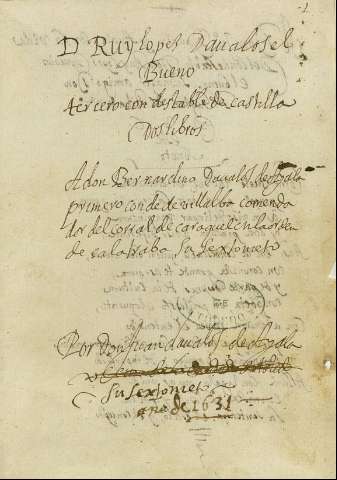 D. Ruy lopez Daualos el
Bueno
tercero condestable de castilla
Dos libros
A don Bernardino Daualos de Ayala
primero conde de villalba comenda
dor del corral de caraquel en la orden
de calatraba Su sexto nieto
Por Don Juan daualos de Ayala
Su sexto nieto
año de 1631